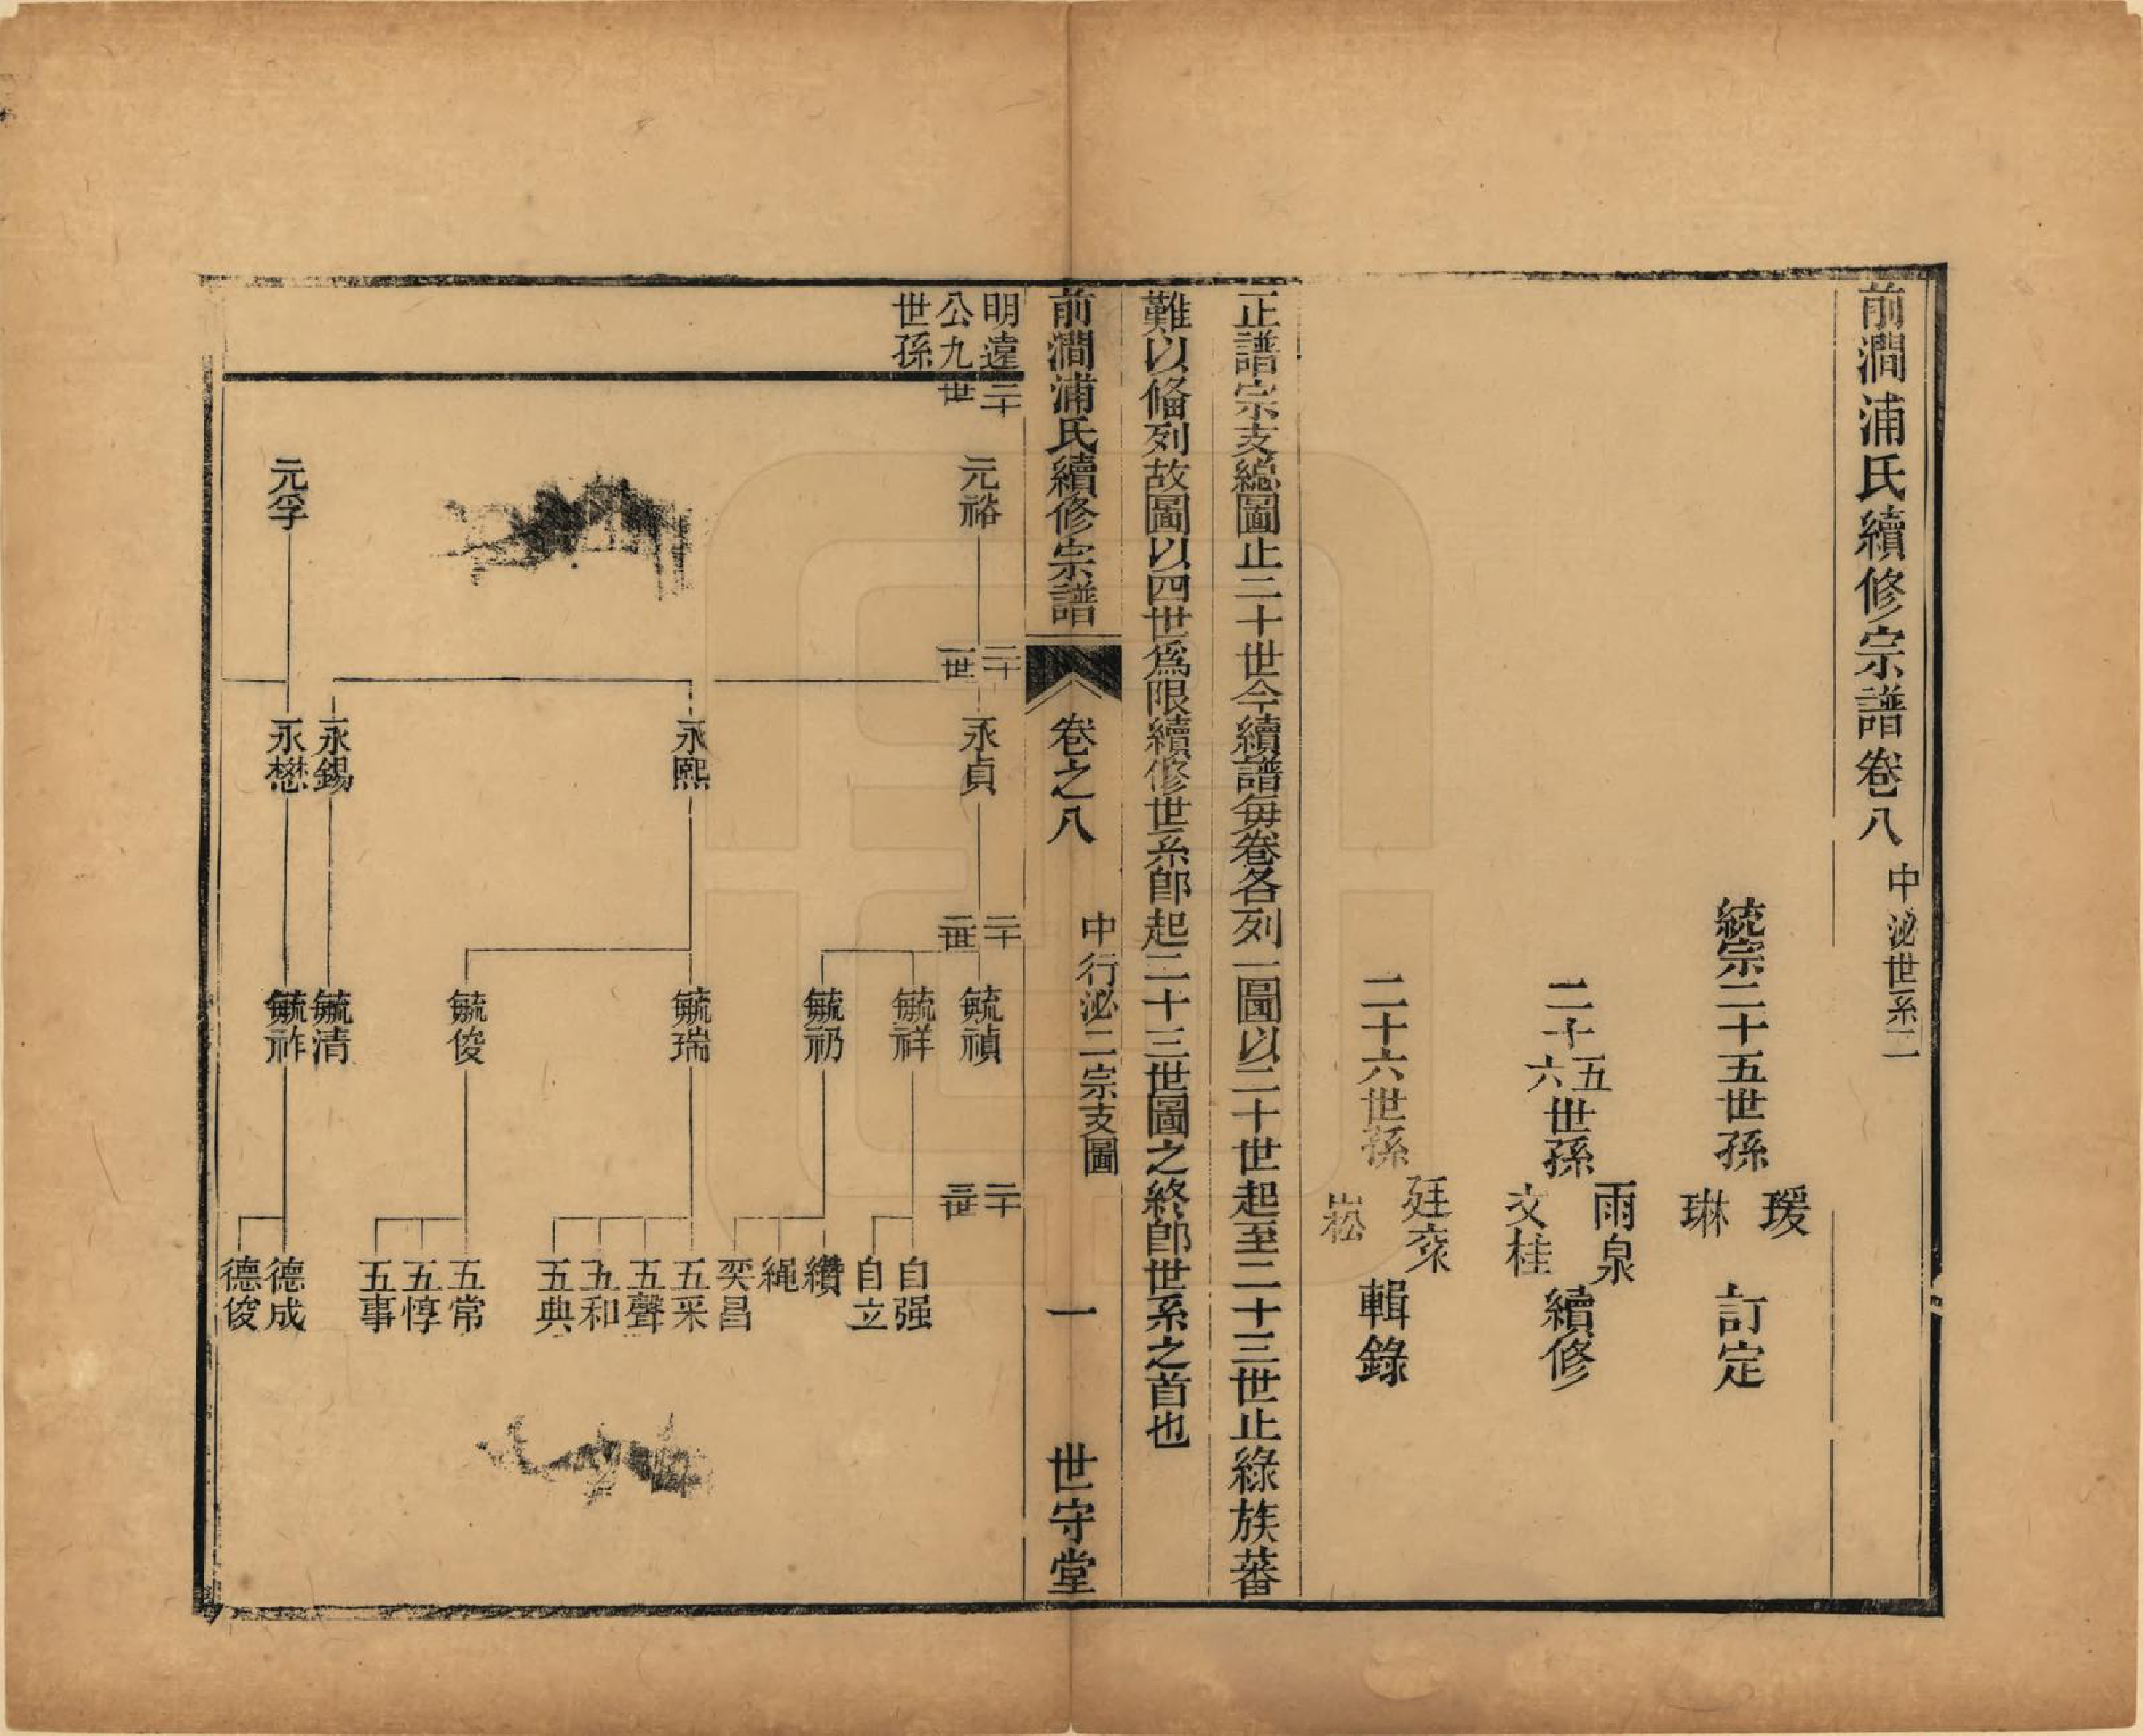 前澗浦氏續修宗譜卷八 中泌世系二
統宗二十五世孫 瑗 琳 訂定
二十五六世孫 雨泉 文桂 續修
二十六世孫 廷寀 崧 輯錄
正譜宗支緫圖止二十世今續譜每卷各列一圖以二十世起至二十三世止緣族蕃
難以偹列故圖以四世爲限續修世系卽起二十三世圖之終卽世系之首也
前澗浦氏續修宗譜 卷之八 中行泌二宗支圖 一 世守堂
明遠公九世孫
二十世
元裕
元孚
二十一世
永貞
永熙
永錫
永懋
二十二世
毓禎
毓祥
毓礽
毓瑞
毓俊
毓清
毓祚
二十三世
自强
自立
纘
繩
奕昌
五采
五聲
五和
五典
五常
五惇
五事
德成
德俊